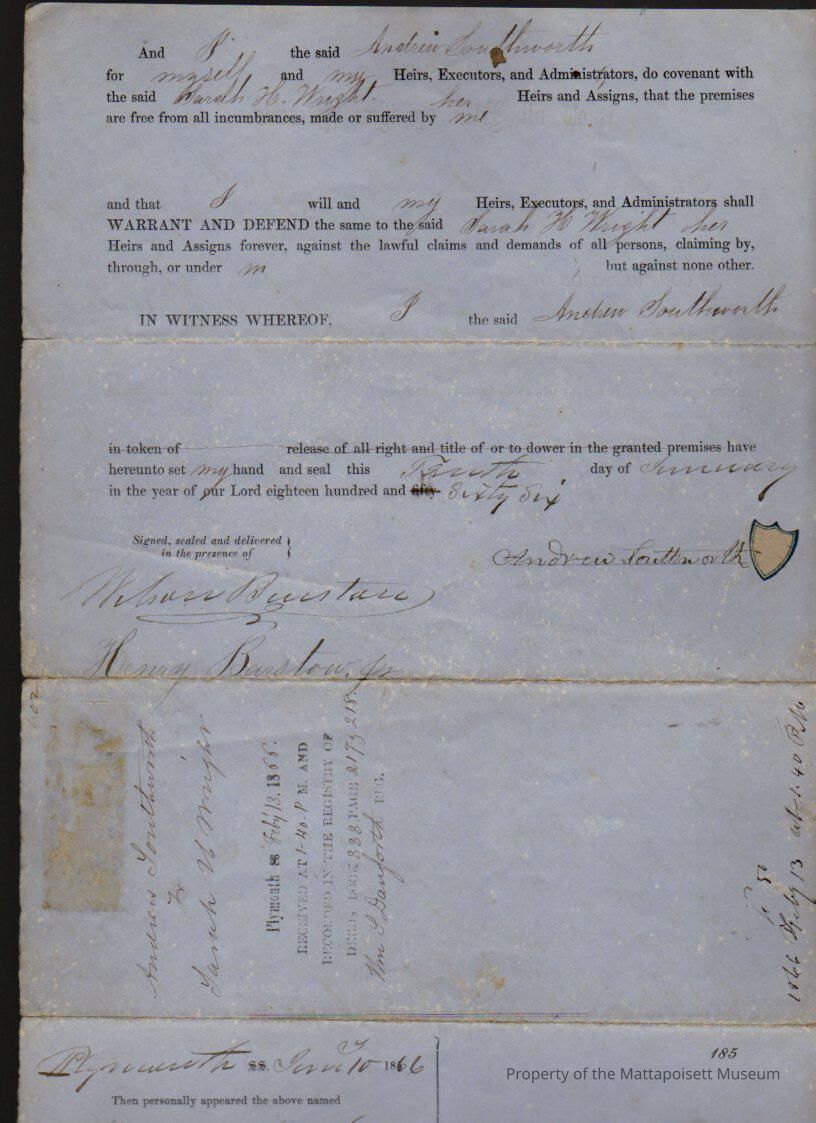 And I the said Andrew Southworth
for myself and my Heirs, Executors, and Administrators, do covenant with
the said Sarah H. Wright. her Heirs and Assigns, that the premises
are free from all incumbrances, made or suffered by me
and that I will and my Heirs, Executors, and Administrators shall
WARRANT AND DEFEND the same to the said Sarah H Wright her
Heirs and Assigns forever, against the lawful claims and demands of all persons, claiming by,
through, or under m but against none other.
IN WITNESS WHEREOF, I the said Andrew Southworth
in token of release of all right and title of or to dower in the granted premises have
hereunto set my hand and seal this Tenth day of January
in the year of our Lord eighteen hundred and fifty- Sixty Six
Signed, sealed and delivered
in the presence of
Andrew Southworth
Wilson Barstow
Henry Barstow. Jr
602
Andrew Southworth
To
Sarah H Wright
Plymouth ss Feby 13. 1866.
RECEIVED AT 1-40. P M. AND
RECORDED IN THE REGISTRY OF
DEEDS BOOK 333 PAGE 217 218.
Wm S Danforth REG.
50
1866 Feby 13 at 1.40 P.M
Plymouth SS. Jany 10 1866
Then personally appeared the above named
185
Property of the Mattapoisett Museum